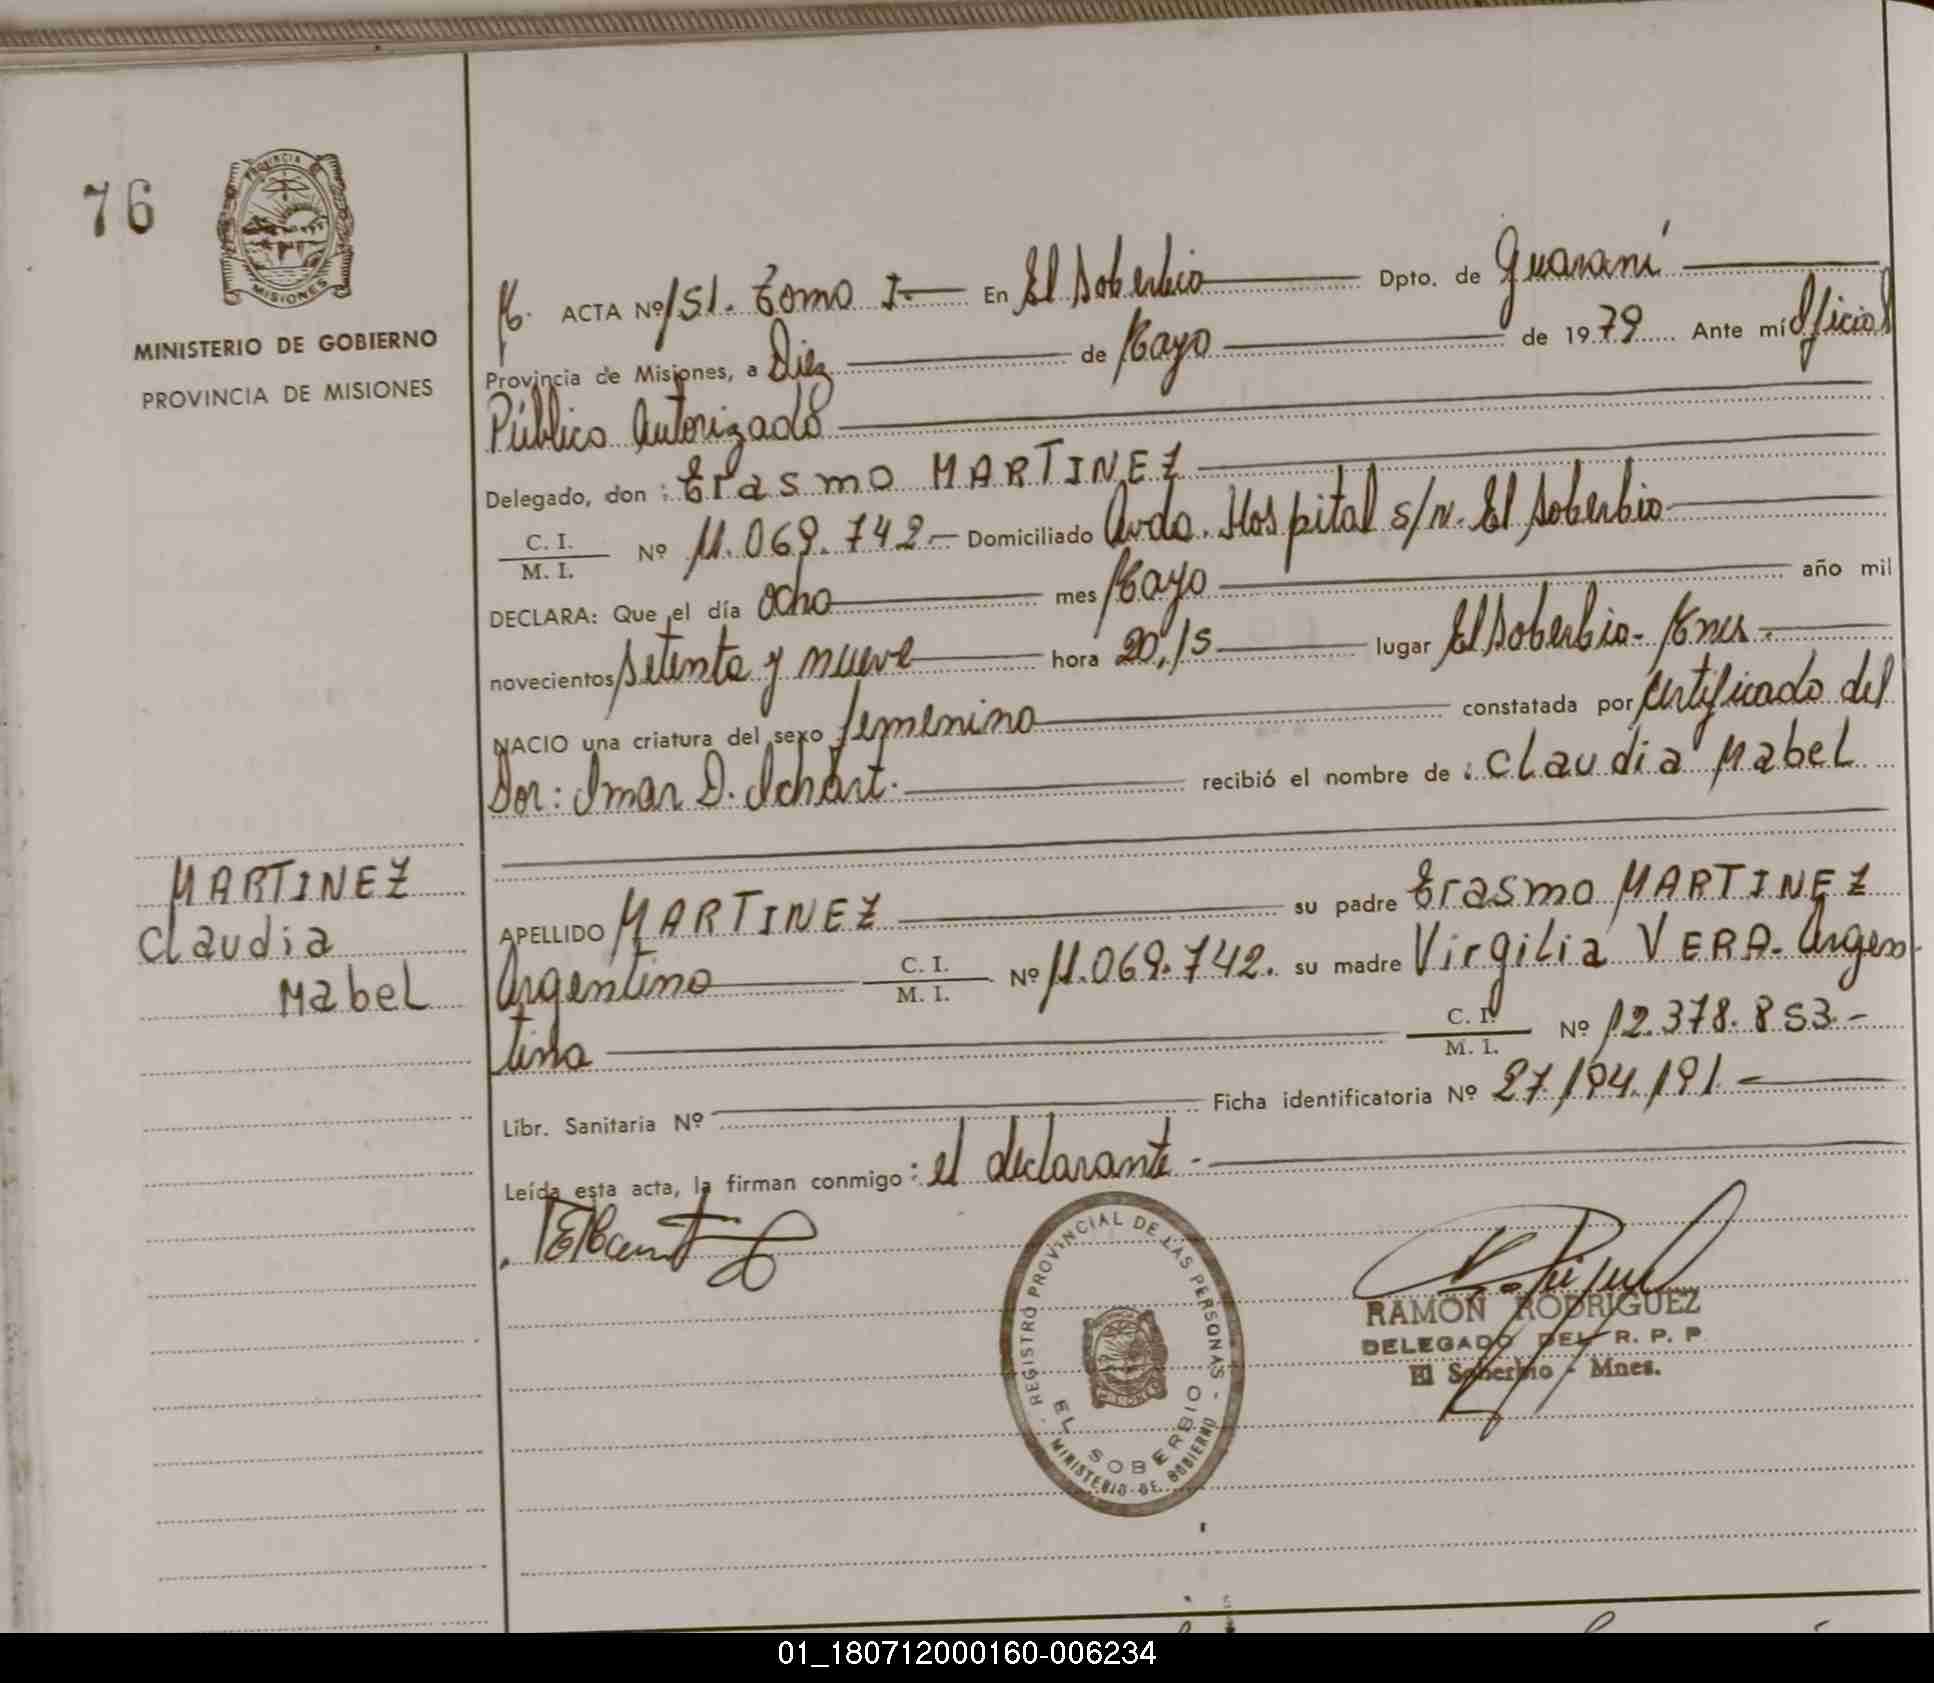 76
PROVINCIA
MISIONES
MINISTERIO DE GOBIERNO
PROVINCIA DE MISIONES
ACTA Nº 151. Tomo I.- En El Soberbio Dpto. de Guaraní
Provincia de Misiones, a Diez de Mayo de 1979 Ante mí Oficial
Público Autorizado
Delegado, don: Erasmo MARTINEZ
C. I.
M. I.
Nº 11.069.742.- Domiciliado Avda. Hospital s/n. El Soberbio
DECLARA: Que el día ocho mes Mayo año mil
novecientos setenta y nueve hora 20,15 lugar El Soberbio- Mnes.-
NACIO una criatura del sexo femenino constatada por certificado del
Dor: Omar D. Ichart. recibió el nombre de: Claudia Mabel
MARTINEZ
Claudia
Mabel
APELLIDO MARTINEZ su padre Erasmo MARTINEZ
Argentino C. I.
M. I.
Nº 11.069.742. su madre Virgilia VERA- Argen-
tina C. I.
M. I.
Nº 12.378.853.-
Libr. Sanitaria Nº Ficha identificatoria Nº 27.194.191.-
Leída esta acta, la firman conmigo: el declarante.-
REGISTRO PROVINCIAL DE LAS PERSONAS
EL SOBERBIO
MINISTERIO DE GOBIERNO
RAMON RODRIGUEZ
DELEGADO DEL R. P. P
El Soberbio - Mnes.
01_180712000160-006234